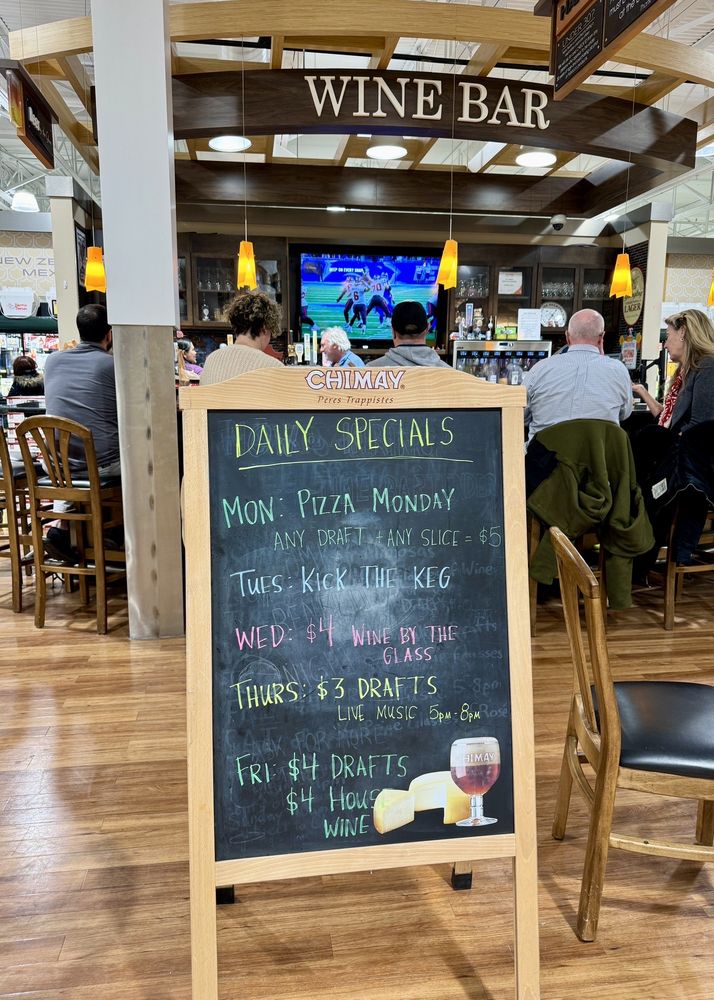 WINE BAR
NEW ZE
MEX
LAGER
CHIMAY
Peres Trappistes
DAILY SPECIALS
MON: PIZZA MONDAY
ANY DRAFT + ANY SLICE = $5
TUES: KICK THE KEG
WED: $4 WINE BY THE
GLASS
THURS: $3 DRAFTS
LIVE MUSIC 5PM-8PM
FRI: $4 DRAFTS
$4 HOUSE
WINE
CHIMAY